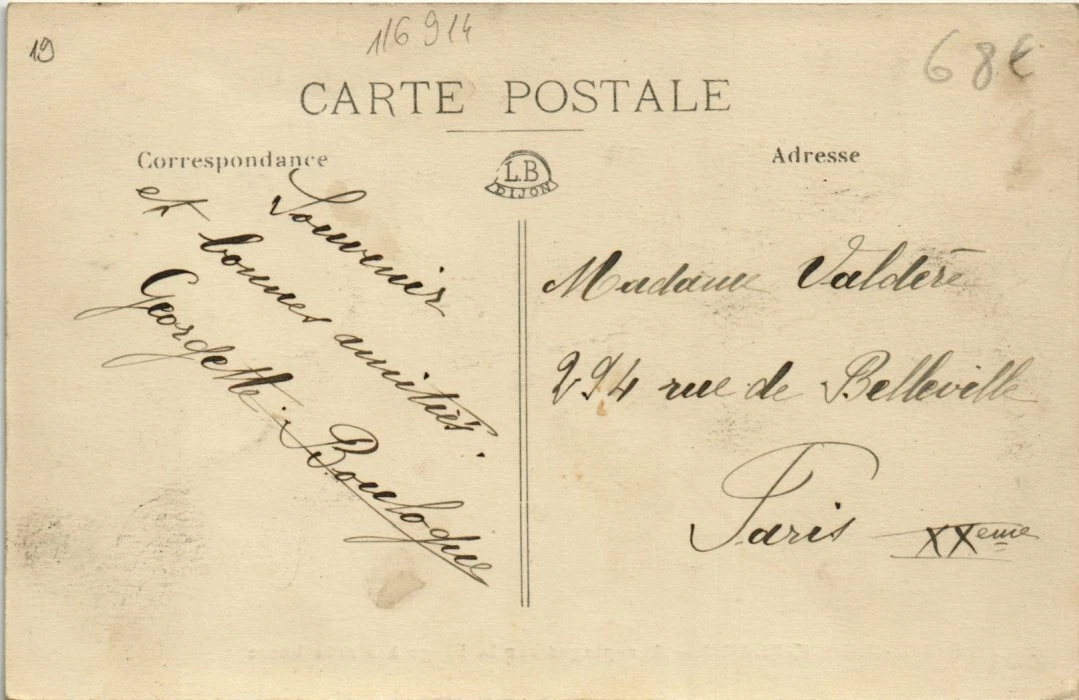 19
116914
68€
CARTE POSTALE
Correspondance
L.B
DIJON
Adresse
Souvenir
et bonnes amitiés.
Georgette Boulogne
Madame Valdere
294 rue de Belleville
Paris XXeme